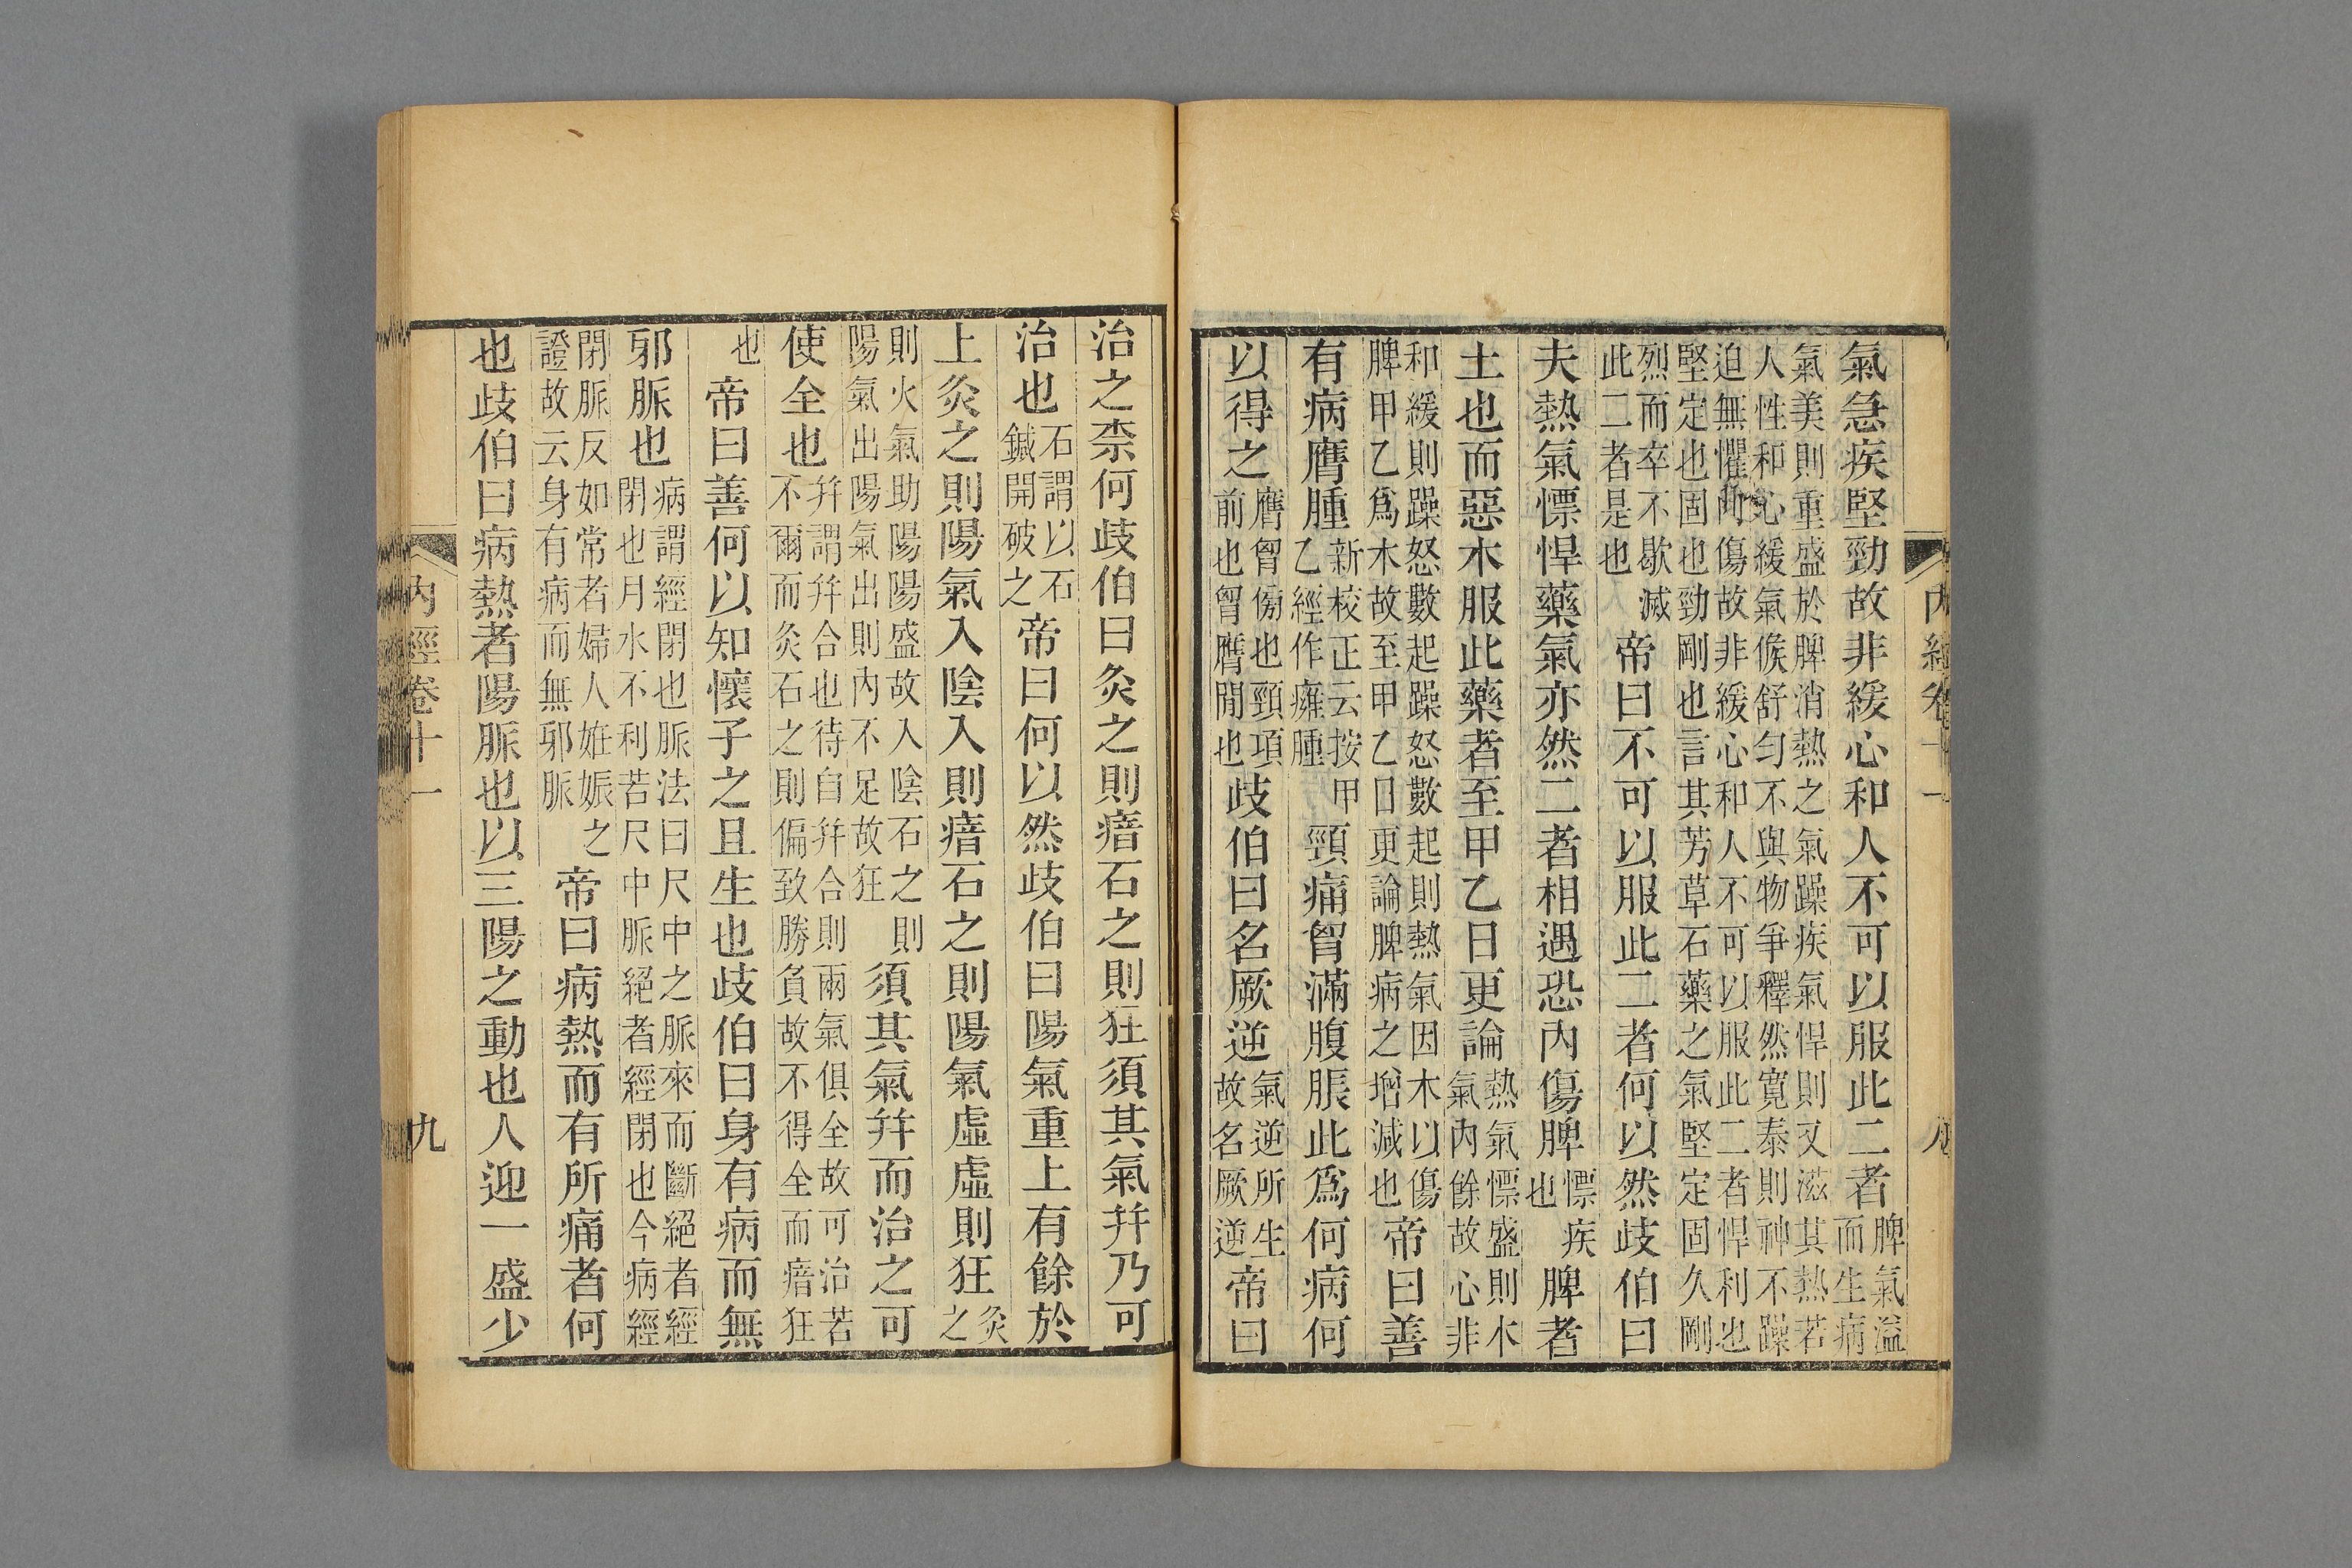 內經卷十一 八
氣急疾堅勁故非緩心和人不可以服此二者脾氣溢而生病
氣美則重盛於脾消熱之氣躁疾氣悍則又滋其熱若
人性和心緩氣候舒勻不與物爭釋然寬泰則神不躁
迫無懼內傷故非緩心和人不可以服此二者悍利也
堅定也固也勁剛也言其芳草石藥之氣堅定固久剛
烈而卒不歇滅此二者是也帝曰不可以服此二者何以然歧伯曰
夫熱氣慓悍藥氣亦然二者相遇恐內傷脾慓疾也脾者
土也而惡木服此藥者至甲乙日更論熱氣慓盛則木氣內餘故心非
和緩則躁怒數起躁怒數起則熱氣因木以傷脾甲乙爲木故至甲乙日更論脾病之增減也帝曰善
有病膺腫新校正云按甲乙經作癰腫頸痛胷滿腹脹此爲何病何
以得之膺胷傍也頸項前也胷膺間也歧伯曰名厥逆氣逆所生故名厥逆帝曰
治之柰何歧伯曰灸之則瘖石之則狂須其氣并乃可
治也石謂以石鍼開破之帝曰何以然歧伯曰陽氣重上有餘於
上灸之則陽氣入陰入則瘖石之則陽氣虛虛則狂灸之
則火氣助陽陽盛故入陰石之則陽氣出陽氣出則內不足故狂須其氣并而治之可
使全也并謂并合也待自并合則兩氣俱全故可治若不爾而灸石之則偏致勝負故不得全而瘖狂
也帝曰善何以知懷子之且生也歧伯曰身有病而無
邪脈也病謂經閉也脈法曰尺中之脈來而斷絕者經閉也月水不利若尺中脈絕者經閉也今病經
閉脈反如常者婦人姙娠之證故云身有病而無邪脈帝曰病熱而有所痛者何
也歧伯曰病熱者陽脈也以三陽之動也人迎一盛少
內經卷十一 九